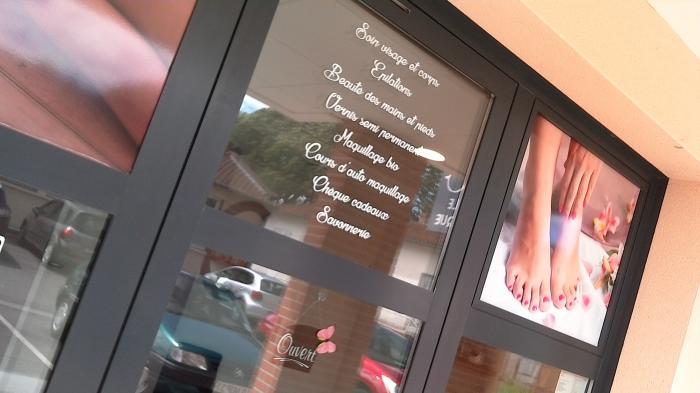 Soin visage et corps
Epilations
Beauté des mains et pieds
Vernis semi permanent
Maquillage bio
Cours d'auto maquillage
Chèque cadeaux
Savonnerie
Ouvert